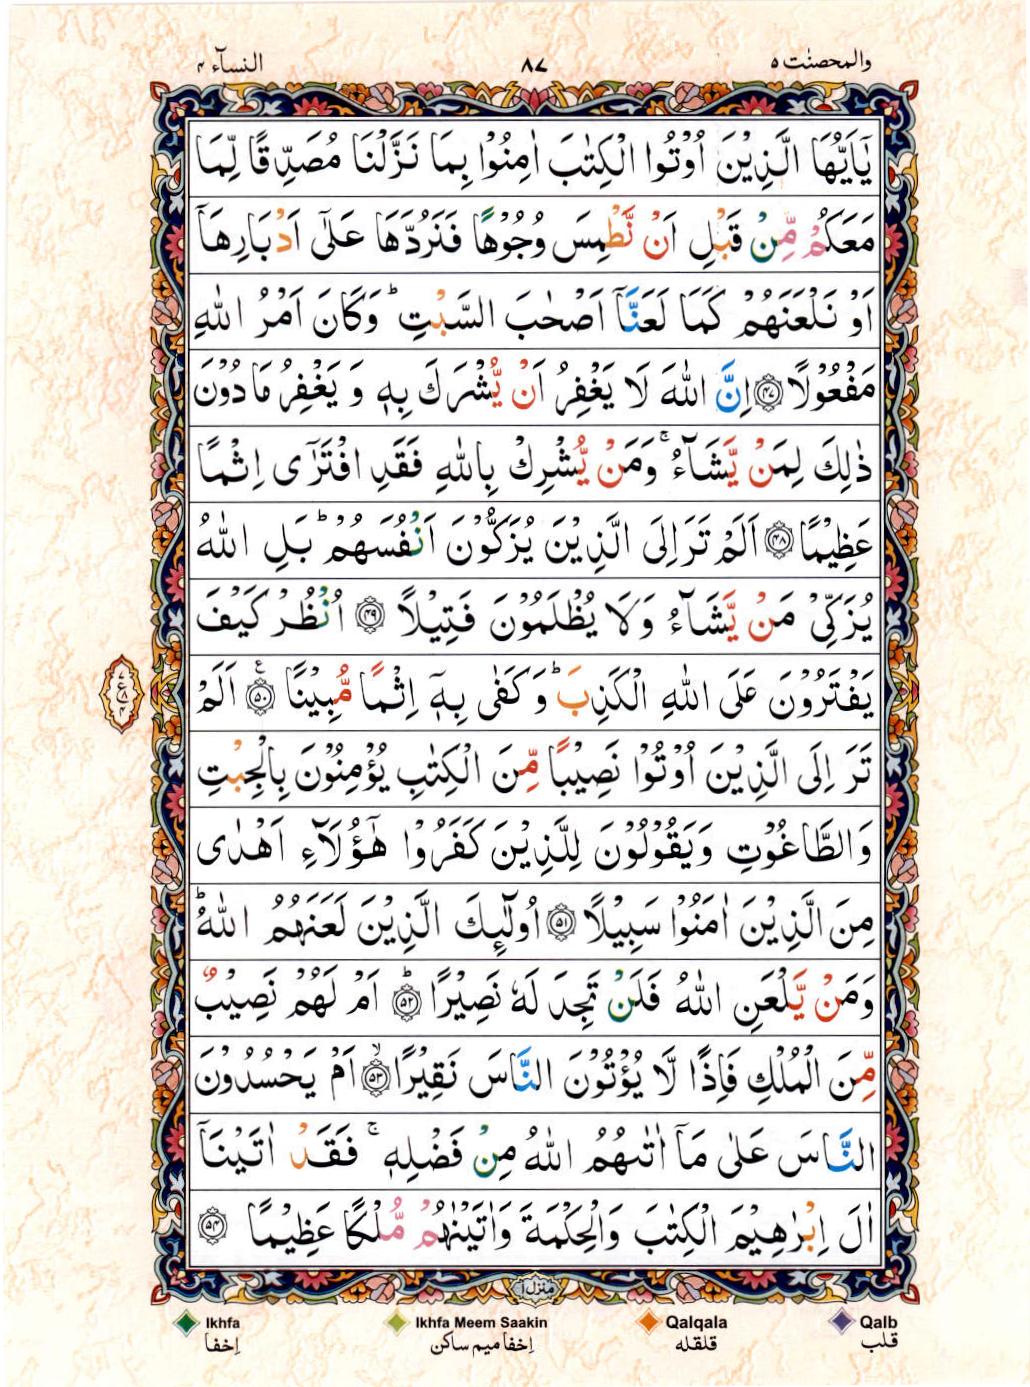 والمحصنٰت ٥
٨٧
النسآء ٤
يٰٓاَيُّهَا الَّذِيْنَ اُوْتُوا الْكِتٰبَ اٰمِنُوْا بِمَا نَزَّلْنَا مُصَدِّقًا لِّمَا
مَعَكُمْ مِّنْ قَبْلِ اَنْ نَّطْمِسَ وُجُوْهًا فَنَرُدَّهَا عَلٰٓى اَدْبَارِهَآ
اَوْ نَلْعَنَهُمْ كَمَا لَعَنَّآ اَصْحٰبَ السَّبْتِ ؕ وَكَانَ اَمْرُ اللّٰهِ
مَفْعُوْلًا ﴿٤٧﴾ اِنَّ اللّٰهَ لَا يَغْفِرُ اَنْ يُّشْرَكَ بِهٖ وَ يَغْفِرُ مَا دُوْنَ
ذٰلِكَ لِمَنْ يَّشَآءُ ۚ وَمَنْ يُّشْرِكْ بِاللّٰهِ فَقَدِ افْتَرٰٓى اِثْمًا
عَظِيْمًا ﴿٤٨﴾ اَلَمْ تَرَ اِلَى الَّذِيْنَ يُزَكُّوْنَ اَنْفُسَهُمْ ؕ بَلِ اللّٰهُ
يُزَكِّيْ مَنْ يَّشَآءُ وَلَا يُظْلَمُوْنَ فَتِيْلًا ﴿٤٩﴾ اُنْظُرْ كَيْفَ
يَفْتَرُوْنَ عَلَى اللّٰهِ الْكَذِبَ ؕ وَكَفٰى بِهٖٓ اِثْمًا مُّبِيْنًا ﴿٥٠﴾ اَلَمْ
تَرَ اِلَى الَّذِيْنَ اُوْتُوْا نَصِيْبًا مِّنَ الْكِتٰبِ يُؤْمِنُوْنَ بِالْجِبْتِ
وَالطَّاغُوْتِ وَيَقُوْلُوْنَ لِلَّذِيْنَ كَفَرُوْا هٰٓؤُلَآءِ اَهْدٰى
مِنَ الَّذِيْنَ اٰمَنُوْا سَبِيْلًا ﴿٥١﴾ اُولٰٓئِكَ الَّذِيْنَ لَعَنَهُمُ اللّٰهُ ؕ
وَمَنْ يَّلْعَنِ اللّٰهُ فَلَنْ تَجِدَ لَهٗ نَصِيْرًا ؕ ﴿٥٢﴾ اَمْ لَهُمْ نَصِيْبٌ
مِّنَ الْمُلْكِ فَاِذًا لَّا يُؤْتُوْنَ النَّاسَ نَقِيْرًا ۙ ﴿٥٣﴾ اَمْ يَحْسُدُوْنَ
النَّاسَ عَلٰى مَآ اٰتٰىهُمُ اللّٰهُ مِنْ فَضْلِهٖ ۚ فَقَدْ اٰتَيْنَآ
اٰلَ اِبْرٰهِيْمَ الْكِتٰبَ وَالْحِكْمَةَ وَاٰتَيْنٰهُمْ مُّلْكًا عَظِيْمًا ﴿٥٤﴾
منزل ١
Ikhfa
Ikhfa Meem Saakin
Qalqala
Qalb
اِخفا
اِخفا میم ساکن
قلقله
قلب